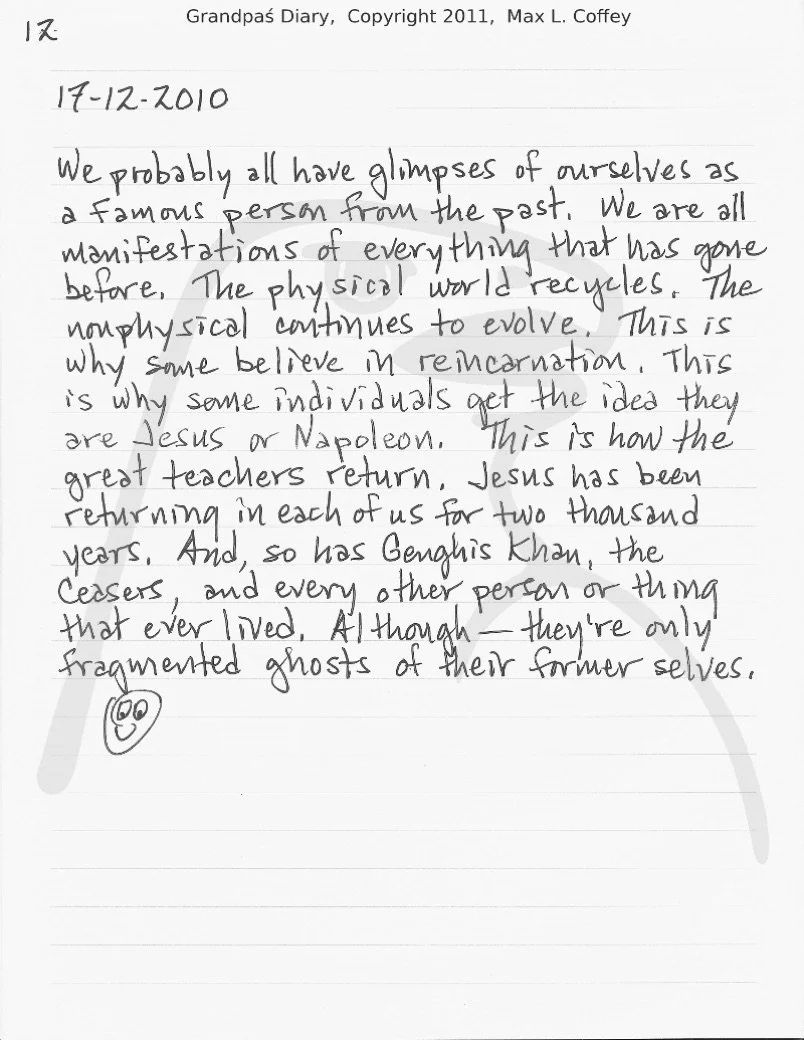 Grandpaś Diary, Copyright 2011, Max L. Coffey
12
17-12-2010
We probably all have glimpses of ourselves as
a famous person from the past. We are all
manifestations of everything that has gone
before. The physical world recycles. The
nonphysical continues to evolve. This is
why some believe in reincarnation. This
is why some individuals get the idea they
are Jesus or Napoleon. This is how the
great teachers return. Jesus has been
returning in each of us for two thousand
years. And, so has Genghis Khan, the
Ceasers, and every other person or thing
that ever lived. Although—they're only
fragmented ghosts of their former selves.